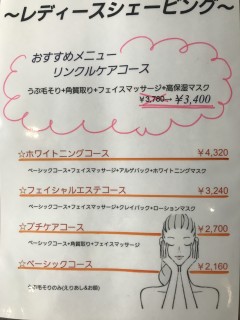 ～レディースシェービング～
おすすめメニュー
リンクルケアコース
うぶ毛そり+角質取り+フェイスマッサージ+高保湿マスク
￥3,780→￥3,400
☆ホワイトニングコース ￥4,320
ベーシックコース+フェイスマッサージ+アルゲパック+ホワイトニングマスク
☆フェイシャルエステコース ￥3,240
ベーシックコース+フェイスマッサージ+クレイパック+ローションマスク
☆プチケアコース ￥2,700
ベーシックコース+角質取り+フェイスマッサージ
☆ベーシックコース ￥2,160
うぶ毛そりのみ(えりあし&お顔)